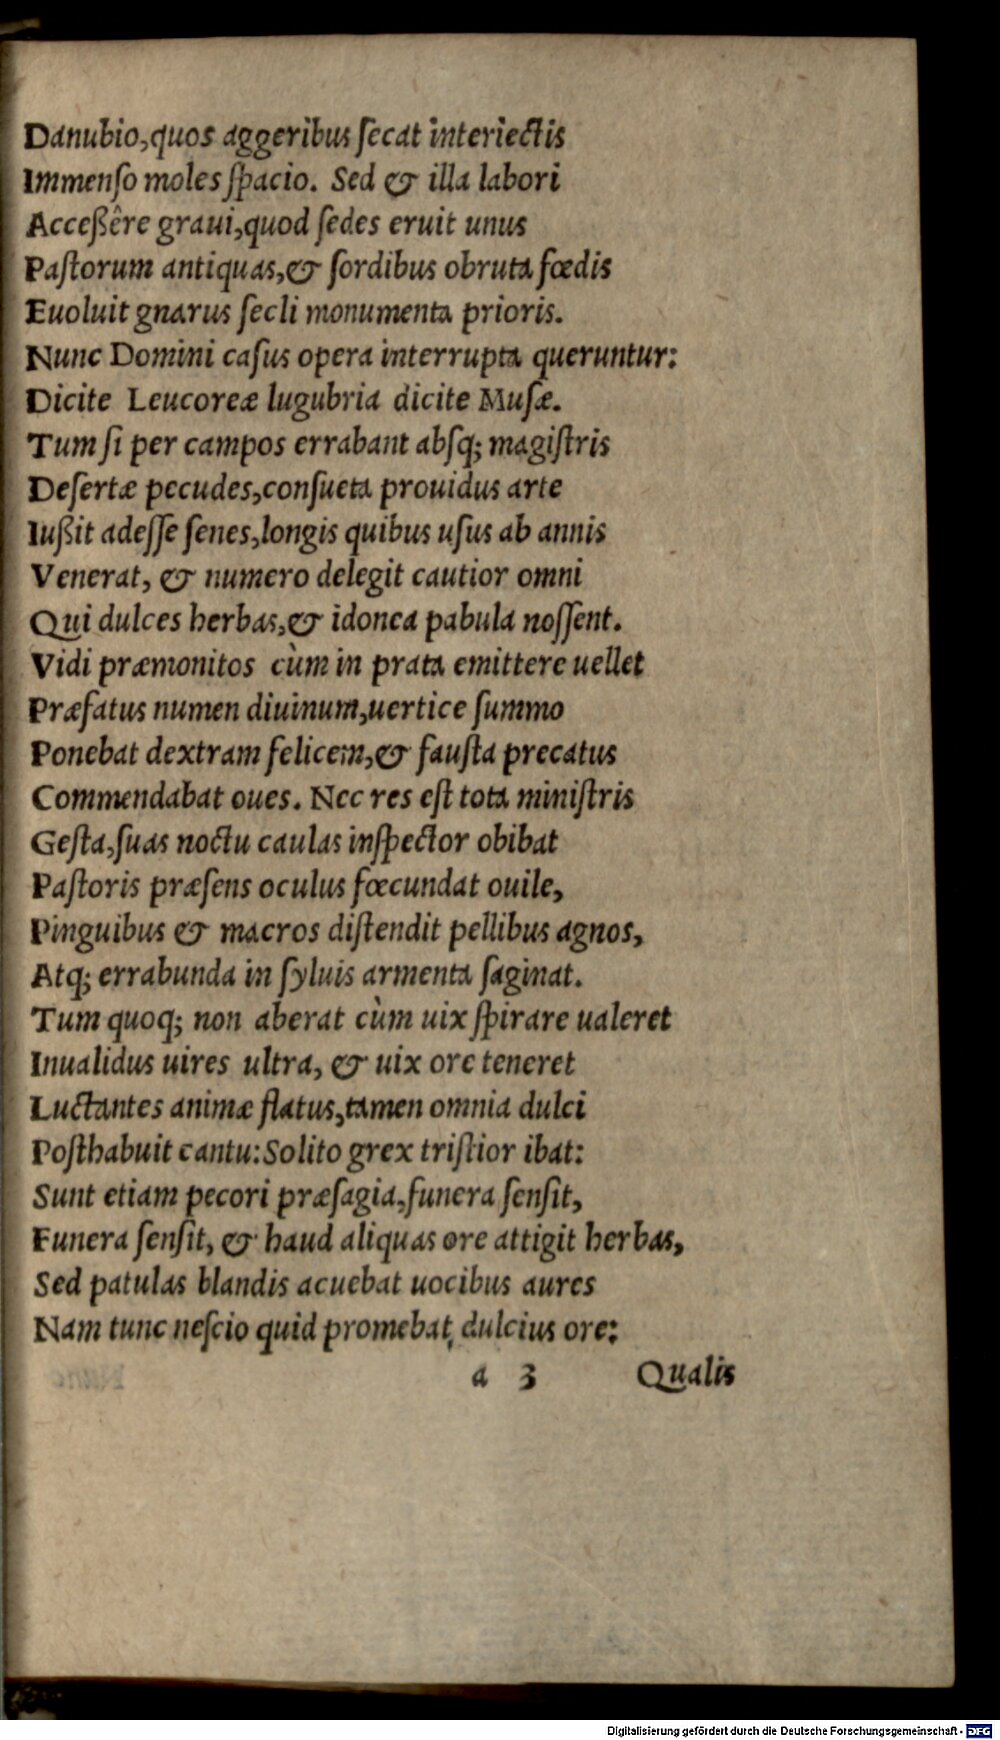 Danubio,quos aggeribus ſecat interiectis
Immenſo moles ſpacio. Sed & illa labori
Acceßêre graui,quod ſedes eruit unus
Paſtorum antiquas,& ſordibus obruta fœdis
Euoluit gnarus ſecli monumenta prioris.
Nunc Domini caſus opera interrupta queruntur:
Dicite Leucoreæ lugubria dicite Muſæ.
Tum ſi per campos errabant abſq; magiſtris
Deſertæ pecudes,conſueta prouidus arte
Iußit adeſſe ſenes,longis quibus uſus ab annis
Venerat, & numero delegit cautior omni
Qui dulces herbas,& idonea pabula noſſent.
Vidi præmonitos cùm in prata emittere uellet
Præfatus numen diuinum,uertice ſummo
Ponebat dextram felicem,& fauſta precatus
Commendabat oues. Nec res eſt tota miniſtris
Geſta,ſuas noctu caulas inſpector obibat
Paſtoris præſens oculus fœcundat ouile,
Pinguibus & macros diſtendit pellibus agnos,
Atq; errabunda in ſyluis armenta ſaginat.
Tum quoq; non aberat cùm uix ſpirare ualeret
Inualidus uires ultra, & uix ore teneret
Luctantes animæ flatus,tamen omnia dulci
Poſthabuit cantu:Solito grex triſtior ibat:
Sunt etiam pecori præſagia,funera ſenſit,
Funera ſenſit, & haud aliquas ore attigit herbas,
Sed patulas blandis acuebat uocibus aures
Nam tunc neſcio quid promebat dulcius ore:
a 3 Qualis
Digitalisierung gefördert durch die Deutsche Forschungsgemeinschaft - DFG